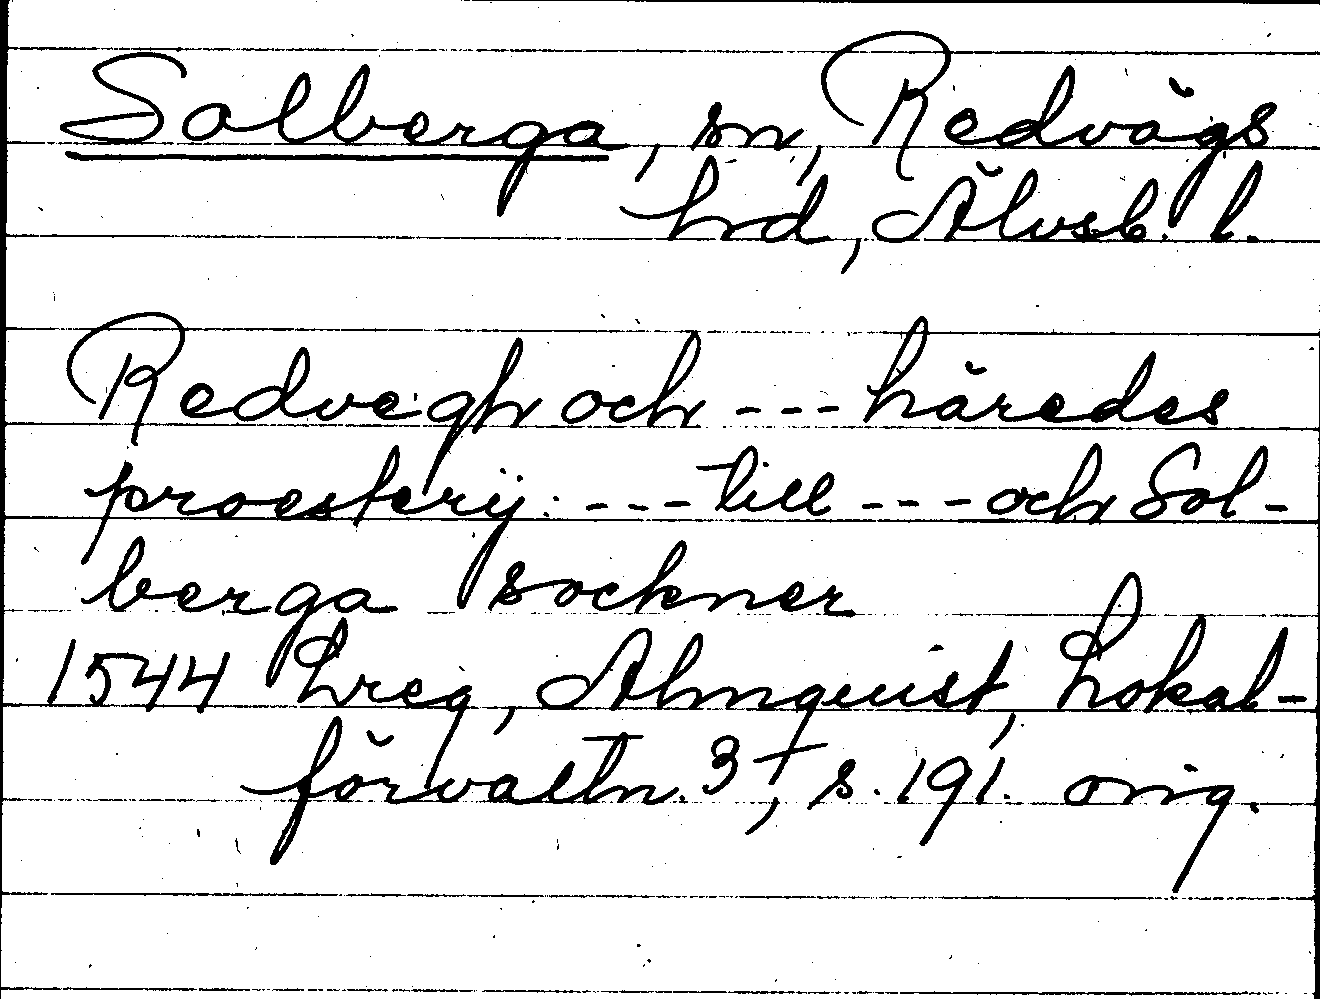 Solberga, sn, Redvägs
hd, Älvsb. l.
Redvegh och --- häredes
proesterij: --- till --- och Sol-
berga sockner
1544 Lreg, Almquist, Lokal-
förvaltn. 3, s. 191. orig.